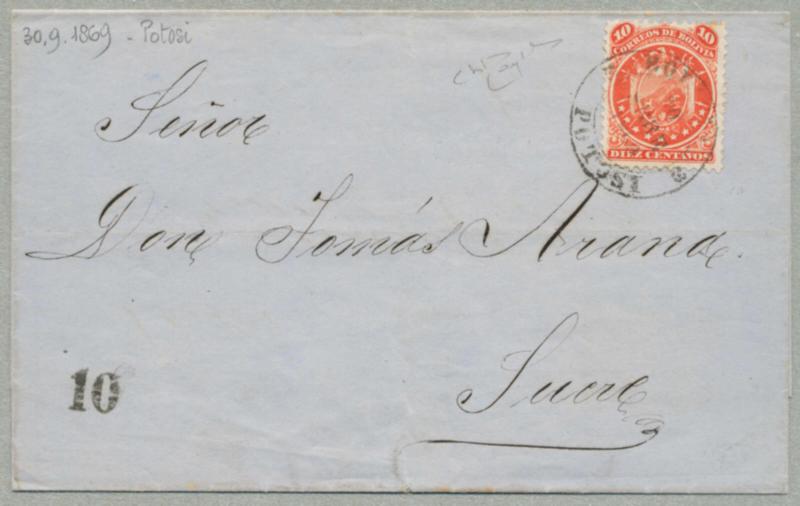 30.9.1869 - Potosi
10 10
CORREOS DE BOLIVIA
DIEZ CENTAVOS
POTOSI
Señor
Don Tomás Arana.
10
Sucre